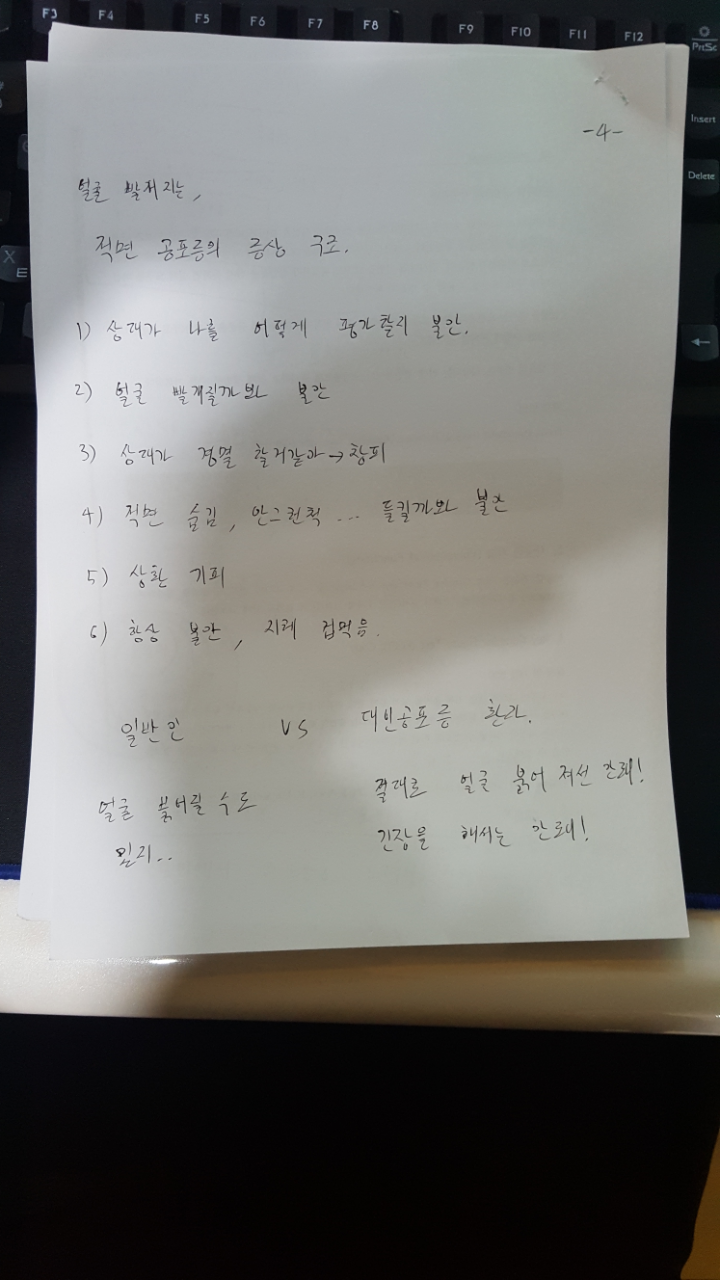 F3 F4 F5 F6 F7 F8 F9 F10 F11 F12 PrtSc
Insert
Delete
X
ㅌ
-4-
얼굴 빨개지는,
적면 공포증의 증상 구조.
1) 상대가 나를 어떻게 평가할지 불안.
2) 얼굴 빨개질까봐 불안
3) 상대가 경멸 할거같아→창피
4) 적면 숨김, 안그런척... 들킬까봐 불안
5) 상황 기피
6) 항상 불안, 지레 겁먹음.
일반인 VS 대인공포증 환자.
얼굴 붉어질 수도 절대로 얼굴 붉어 져선 안돼!
있지.. 긴장을 해서는 안돼!